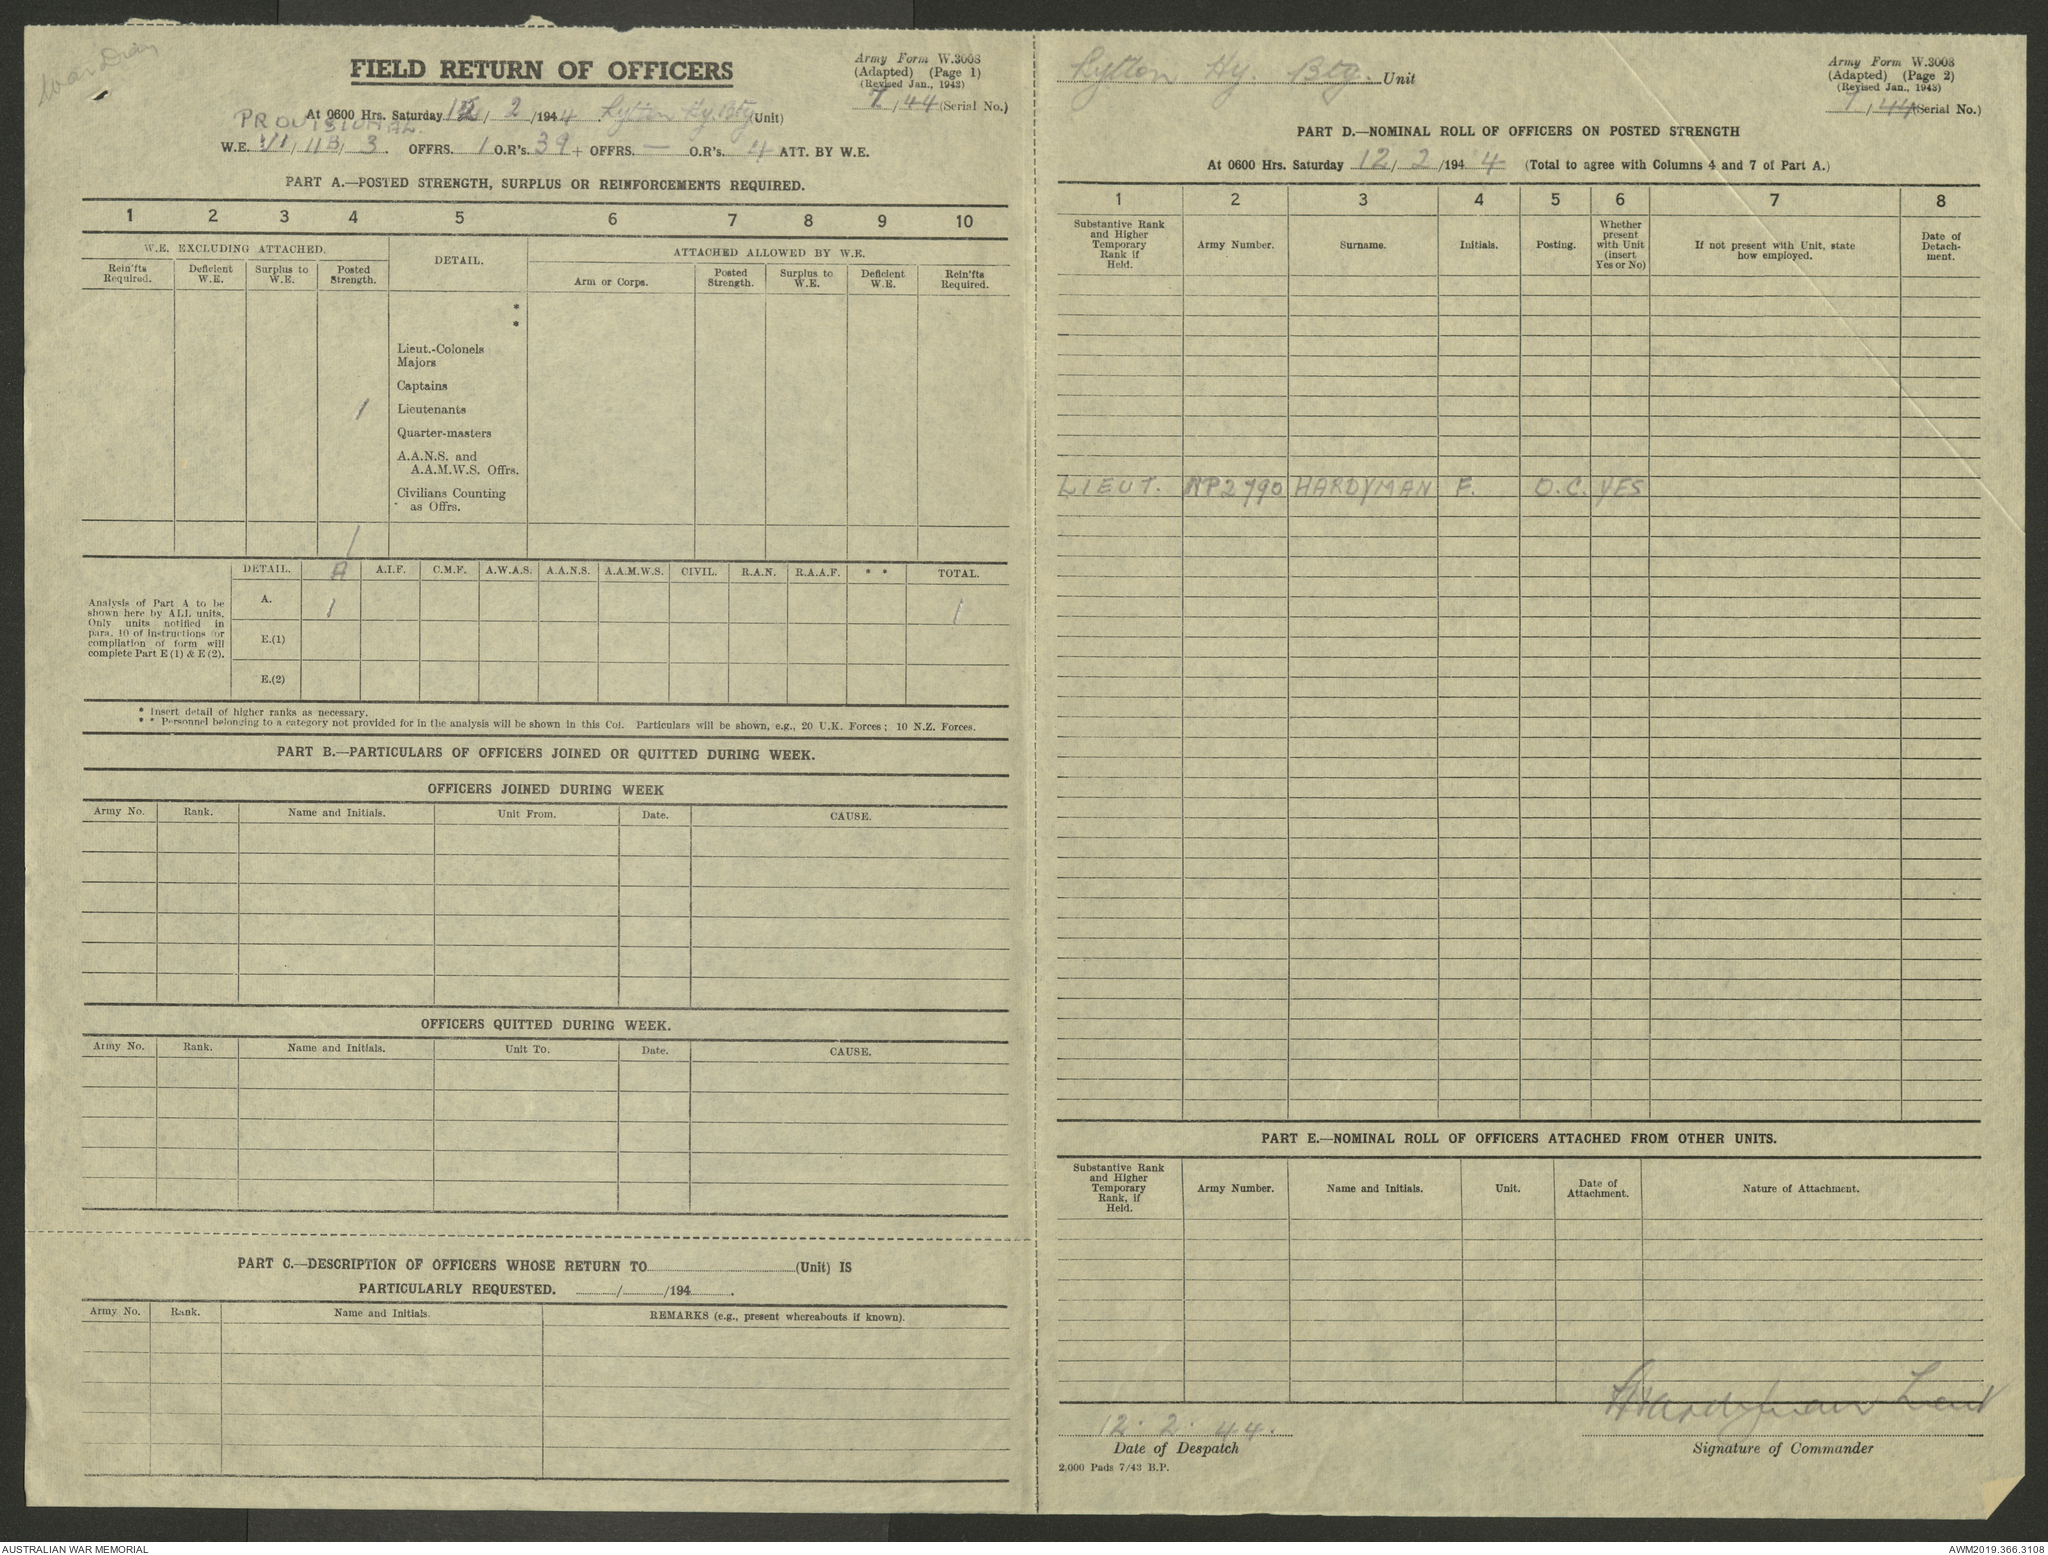 War Diary
FIELD RETURN OF OFFICERS
Army Form W.3008
(Adapted) (Page 1)
(Revised Jan., 1943)
7/44 (Serial No.)
At 0600 Hrs. Saturday 12/2/1944. Lytton Hy. Bty (Unit)
PROVISIONAL.
W.E. VI/11B/3 OFFRS. 1 O.R's. 39 + OFFRS. — O.R's. 4 ATT. BY W.E.
PART A.—POSTED STRENGTH, SURPLUS OR REINFORCEMENTS REQUIRED.
1 2 3 4 5 6 7 8 9 10
W.E. EXCLUDING ATTACHED. DETAIL. ATTACHED ALLOWED BY W.E.
Rein'fts Required. Deficient W.E. Surplus to W.E. Posted Strength. Arm or Corps. Posted Strength. Surplus to W.E. Deficient W.E. Rein'fts Required.
*
*
Lieut.-Colonels
Majors
Captains
1 Lieutenants
Quarter-masters
A.A.N.S. and
A.A.M.W.S. Offrs.
Civilians Counting
as Offrs.
1
DETAIL. A A.I.F. C.M.F. A.W.A.S. A.A.N.S. A.A.M.W.S. CIVIL. R.A.N. R.A.A.F. * * TOTAL.
Analysis of Part A to be
shown here by ALL units.
Only units notified in
para. 10 of instructions for
compilation of form will
complete Part E (1) & E (2).
A. 1 1
E.(1)
E.(2)
* Insert detail of higher ranks as necessary.
* * Personnel belonging to a category not provided for in the analysis will be shown in this Col. Particulars will be shown, e.g., 20 U.K. Forces; 10 N.Z. Forces.
PART B.—PARTICULARS OF OFFICERS JOINED OR QUITTED DURING WEEK.
OFFICERS JOINED DURING WEEK
Army No. Rank. Name and Initials. Unit From. Date. CAUSE.
OFFICERS QUITTED DURING WEEK.
Army No. Rank. Name and Initials. Unit To. Date. CAUSE.
PART C.—DESCRIPTION OF OFFICERS WHOSE RETURN TO (Unit) IS
PARTICULARLY REQUESTED. / /194 .
Army No. Rank. Name and Initials. REMARKS (e.g., present whereabouts if known).
Lytton Hy. Bty. Unit
Army Form W.3008
(Adapted) (Page 2)
(Revised Jan., 1943)
7/44 (Serial No.)
PART D.—NOMINAL ROLL OF OFFICERS ON POSTED STRENGTH
At 0600 Hrs. Saturday 12/2/1944 (Total to agree with Columns 4 and 7 of Part A.)
1 2 3 4 5 6 7 8
Substantive Rank and Higher Temporary Rank if Held. Army Number. Surname. Initials. Posting. Whether present with Unit (insert Yes or No) If not present with Unit, state how employed. Date of Detach-ment.
LIEUT. NP2790 HARDYMAN F. O.C. YES
PART E.—NOMINAL ROLL OF OFFICERS ATTACHED FROM OTHER UNITS.
Substantive Rank and Higher Temporary Rank, if Held. Army Number. Name and Initials. Unit. Date of Attachment. Nature of Attachment.
FHardyman Lieut
12. 2. 44.
Date of Despatch Signature of Commander
2,000 Pads 7/43 B.P.
AUSTRALIAN WAR MEMORIAL AWM2019.366.3108